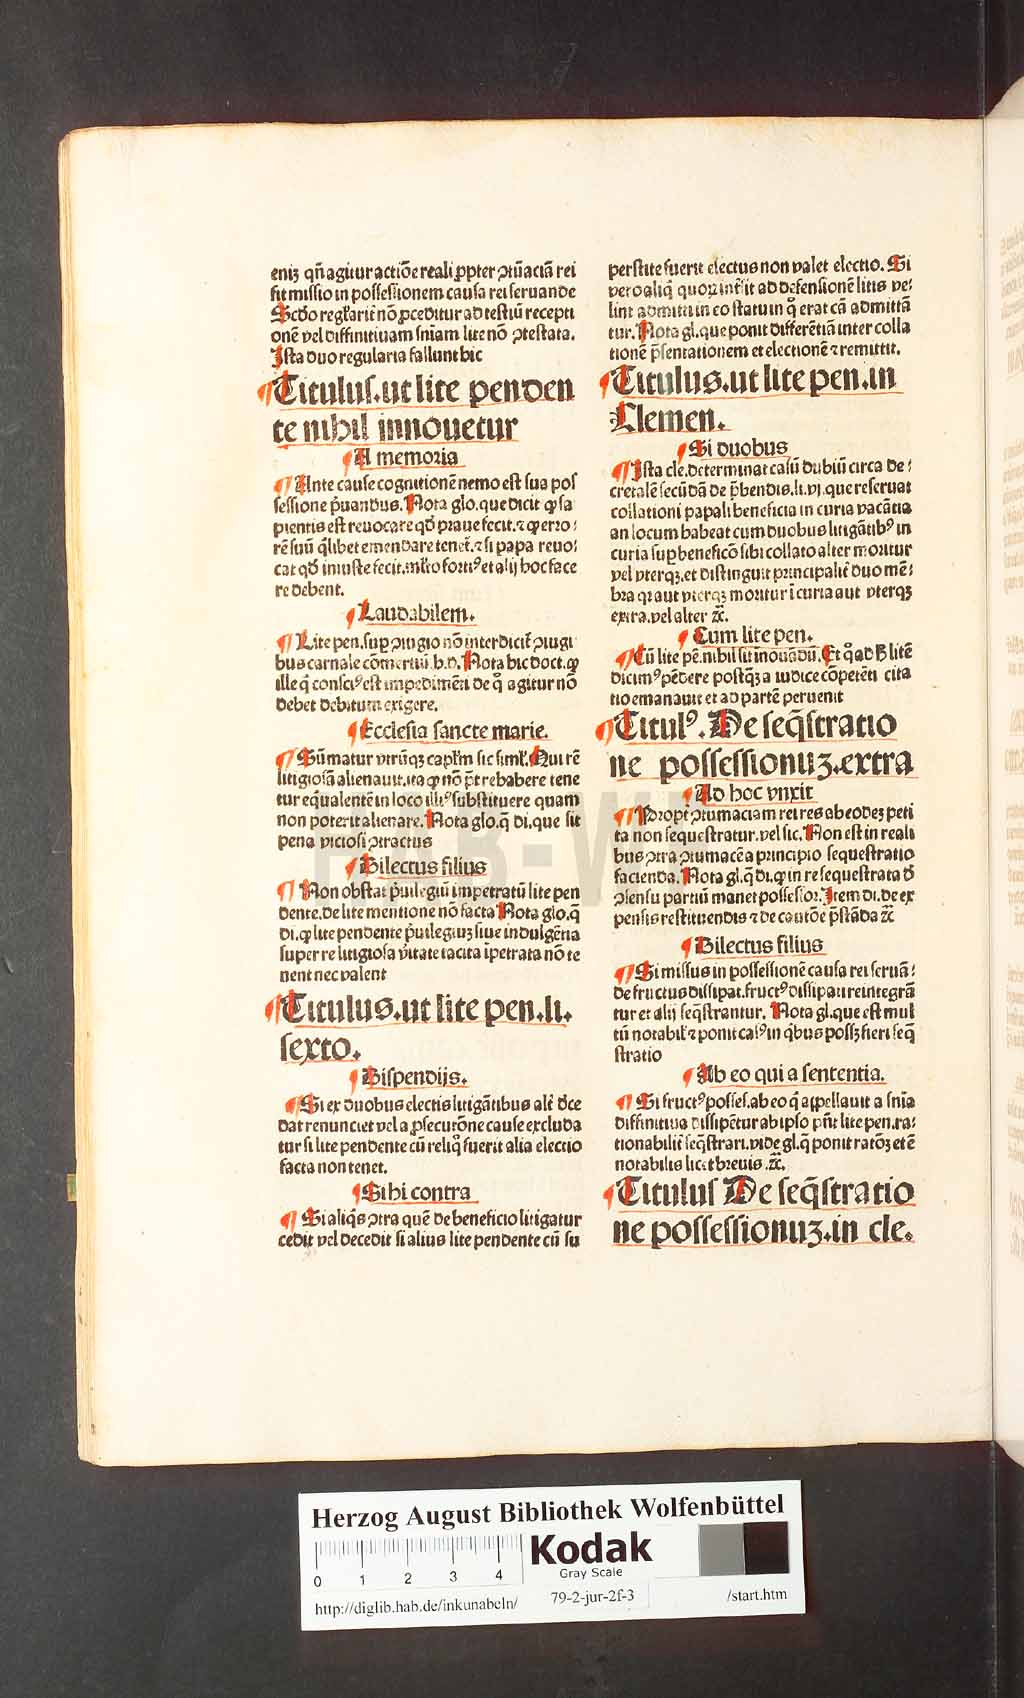 eniz qñ agitur actiõe reali ꝓpter ↄtũaciã rei
fit missio in possessionem causa rei seruande
Scđo regl̃arit̃ nõ ꝓceditur ad testiũ recepti
onẽ vel diffinitiuam sniam lite nõ ↄtestata.
Ista duo regularia fallunt hic
¶ Titulus.ut lite penden
te nihil innouetur
¶ A memoria
¶ Ante cause cognitionẽ nemo est sua pos
sessione p̃uandus. Nota glo.que dicit ꝙ sa
pientis est reuocare qđ praue fecit.⁊ ꝙ erro⸗
rẽ suũ q̃libet emendare tenet̃.⁊ si papa reuo⸗
cat qđ iniuste fecit.ml̃to forti⁹ et alij hoc face
re debent.
¶ Laudabilem.
¶ Lite pen.suꝑ ↄiugio nõ interdicit̃ ↄiugi
bus carnale cõmertiũ.h.d. Nota hic doct.ꝙ
ille q̃ consci⁹ est impedimẽti de q̊ agitur nõ
debet debitum exigere.
¶ Ecclesia sancte marie.
¶ Sũmatur vtrũqz capl̃m sic siml̃. Qui rẽ
litigiosã alienauit.ita ꝙ nõ p̃t rehabere tene
tur eq̃ualentẽ in loco illi⁹ substituere quam
non poterit alienare. Nota glo.q̃ di.que sit
pena viciosi ↄtractus
¶ Dilectus filius
¶ Non obstat p̃uilegiũ impetratũ lite pen
dente.de lite mentione nõ facta Nota glo.q̃
di.ꝙ lite pendente p̃uilegiuz siue indulgẽtia
super re litigiosa v̓itate tacita ĩpetrata nõ te
nent nec valent
¶ Titulus.ut lite pen.li.
sexto.
¶ Dispendijs.
¶ Si ex duobus electis litigãtibus alt̃ dc̃e
dat renunciet vel a ꝓsecutõne cause excluda
tur si lite pendente cũ reliq̊ fuerit alia electio
facta non tenet.
¶ Sibi contra
¶ Si aliq̃s ↄtra quẽ de beneficio litigatur
cedit vel decedit si alius lite pendente cũ su
perstite fuerit electus non valet electio. Si
vero aliq̃ quoꝝ int̃sit ad defensionẽ litis ve⸗
lint admitti in eo statu in q̊ erat cã admittã
tur. Nota gl.que ponit differẽtiã inter colla
tionẽ p̃sentationem et electionẽ ⁊ remittit.
¶ Titulus.ut lite pen.in
Clemen.
¶ Si duobus
¶ Ista cle.determinat casũ dubiũ circa de⸗
cretalẽ secũdã de p̃bendis.li.vj.que reseruat
collationi papali beneficia in curia vacãtia
an locum habeat cum duobus litigãtib⁹ in
curia suꝑ benefic̃o sibi collato alter moritur
vel vterqz.et distinguit principalit̃ duo mẽ⸗
bra q̃a aut vterqz moritur ĩ curia aut vterqz
extra.vel alter ⁊c̃.
¶ Cum lite pen.
¶ Cũ lite pẽ.nihil sit inouãdũ. Et q̊ ad ħ litẽ
dicim⁹ pẽdere postq̃z a iudice cõpetẽti cita
tio emanauit et ad partẽ peruenit
¶ Titul⁹. De seq̃stratio
ne possessionuz.extra
¶ Ad hoc vnxit
¶ Propt̃ ↄtumaciam rei res ab eodez peti
ta non sequestratur.vel sic. Non est in reali
bus ↄtra ↄtumacẽ a principio sequestratio
facienda. Nota gl.q̃ di.ꝙ in re sequestrata đ
ↄsensu partiũ manet possessor. Item di.de ex
pensis restituendis ⁊ de cautõe p̃stãda ⁊c̃
¶ Dilectus filius
¶ Si missus in possessionẽ causa rei seruã⸗
de fructus dissipat.fruct⁹ dissipati reintegrã
tur et alij seq̃strantur. Nota gl.que est mul
tũ notabil̃ ⁊ ponit cas⁹ in q̃bus possz fieri seq̃
stratio
¶ Ab eo qui a sententia.
¶ Si fruct⁹ posses.ab eo q̃ appellauit a sñia
diffinitiua dissipẽtur ab ipso pñt lite pen.ra⸗
tionabilit̃ seq̃strari.vide gl.q̃ ponit ratõz et ẽ
notabilis licet breuis.⁊c̃.
¶ Titulus De seq̃stratio
ne possessionuz.in cle.
Herzog August Bibliothek Wolfenbüttel
Kodak
Gray Scale
0 1 2 3 4
http://diglib.hab.de/inkunabeln/ 79-2-jur-2f-3 /start.htm
HAB-W